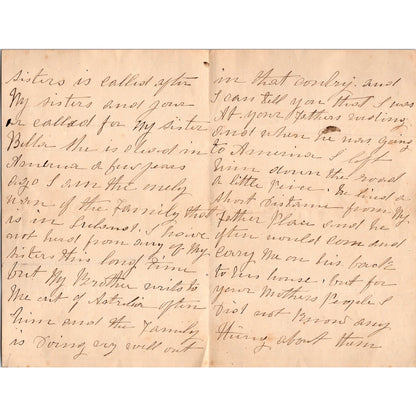 sisters is called after
My sisters and your
is called for My sister
Bella she is dead in
America a few years
ago I am the only
wan of the Family that
is in Ireland I have
not heard from any of My
sisters this long time
but My Brother writs to
Me out of Astrilia often
him and the Family
is doing vry well out
in that contry. and
I can tell you that I was
At your Fathers
and when he was going
to America I left
him down the road
a little piece. he lived a
short distance from My
Father Place and he
often would com and
cary Me on his back
to his house. but for
your Mothers People I
Did not know any
thing about them